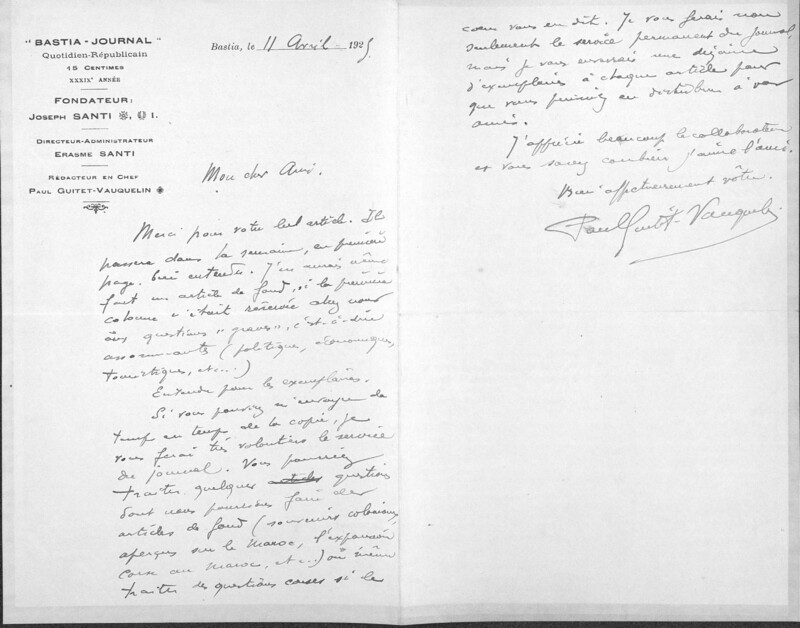 "BASTIA-JOURNAL"
Quotidien-Républicain
15 CENTIMES
XXXIXᵉ ANNÉE
FONDATEUR:
JOSEPH SANTI I.
DIRECTEUR-ADMINISTRATEUR
ERASME SANTI
RÉDACTEUR EN CHEF
PAUL GUITET-VAUQUELIN
Bastia, le 11 Avril 1925
Mon cher Ami.
Merci pour votre bel article. Il
passera dans la semaine, en première
page, bien entendu. J'en aurais même
fait un article de fond, si la première
colonne n'était réservée chez nous
aux questions "graves", c'est-à-dire
assommantes (politiques, économiques,
touristiques, etc...)
Entendu pour les exemplaires.
Si vous pouviez m'envoyer de
temps en temps de la copie, je
vous ferai très volontiers le service
du journal. Vous pourriez
traiter quelques articles questions
dont nous pourrions faire des
articles de fond (souvenirs coloniaux,
aperçus sur le Maroc, l'expansion
corse au Maroc, etc...) ou même
traiter des questions corses si le
cœur vous en dit. Je vous ferais non
seulement le service permanent du journal,
mais je vous enverrais une dizaine
d'exemplaires à chaque article pour
que vous puissiez en distribuer à vos
amis.
J'apprécie beaucoup le collaborateur
et vous savez combien j'aime l'ami.
Bien affectueusement vôtre.
Paul Guitet-Vauquelin